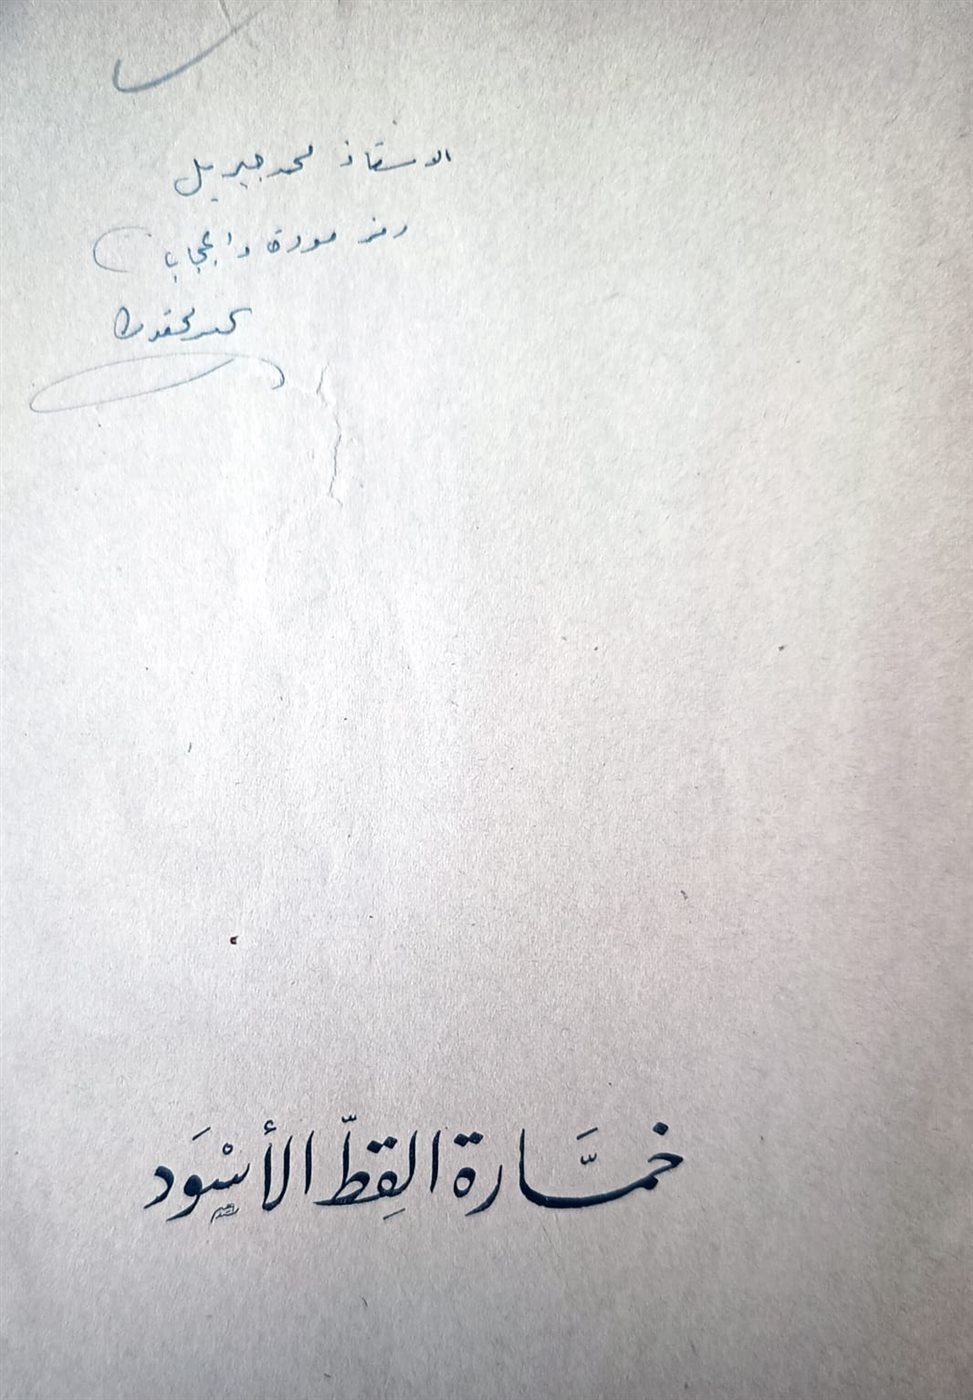 الاستاذ محمد جبريل
رمز مودة وإعجاب
نجيب محفوظ
خمَّارة القِطّ الأسْوَد